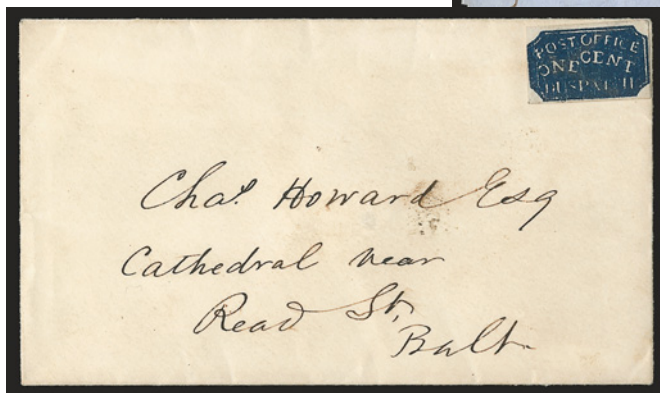 POST OFFICE
ONE CENT
DESPATCH
Chas. Howard Esq
Cathedral near
Read St.
Balt.